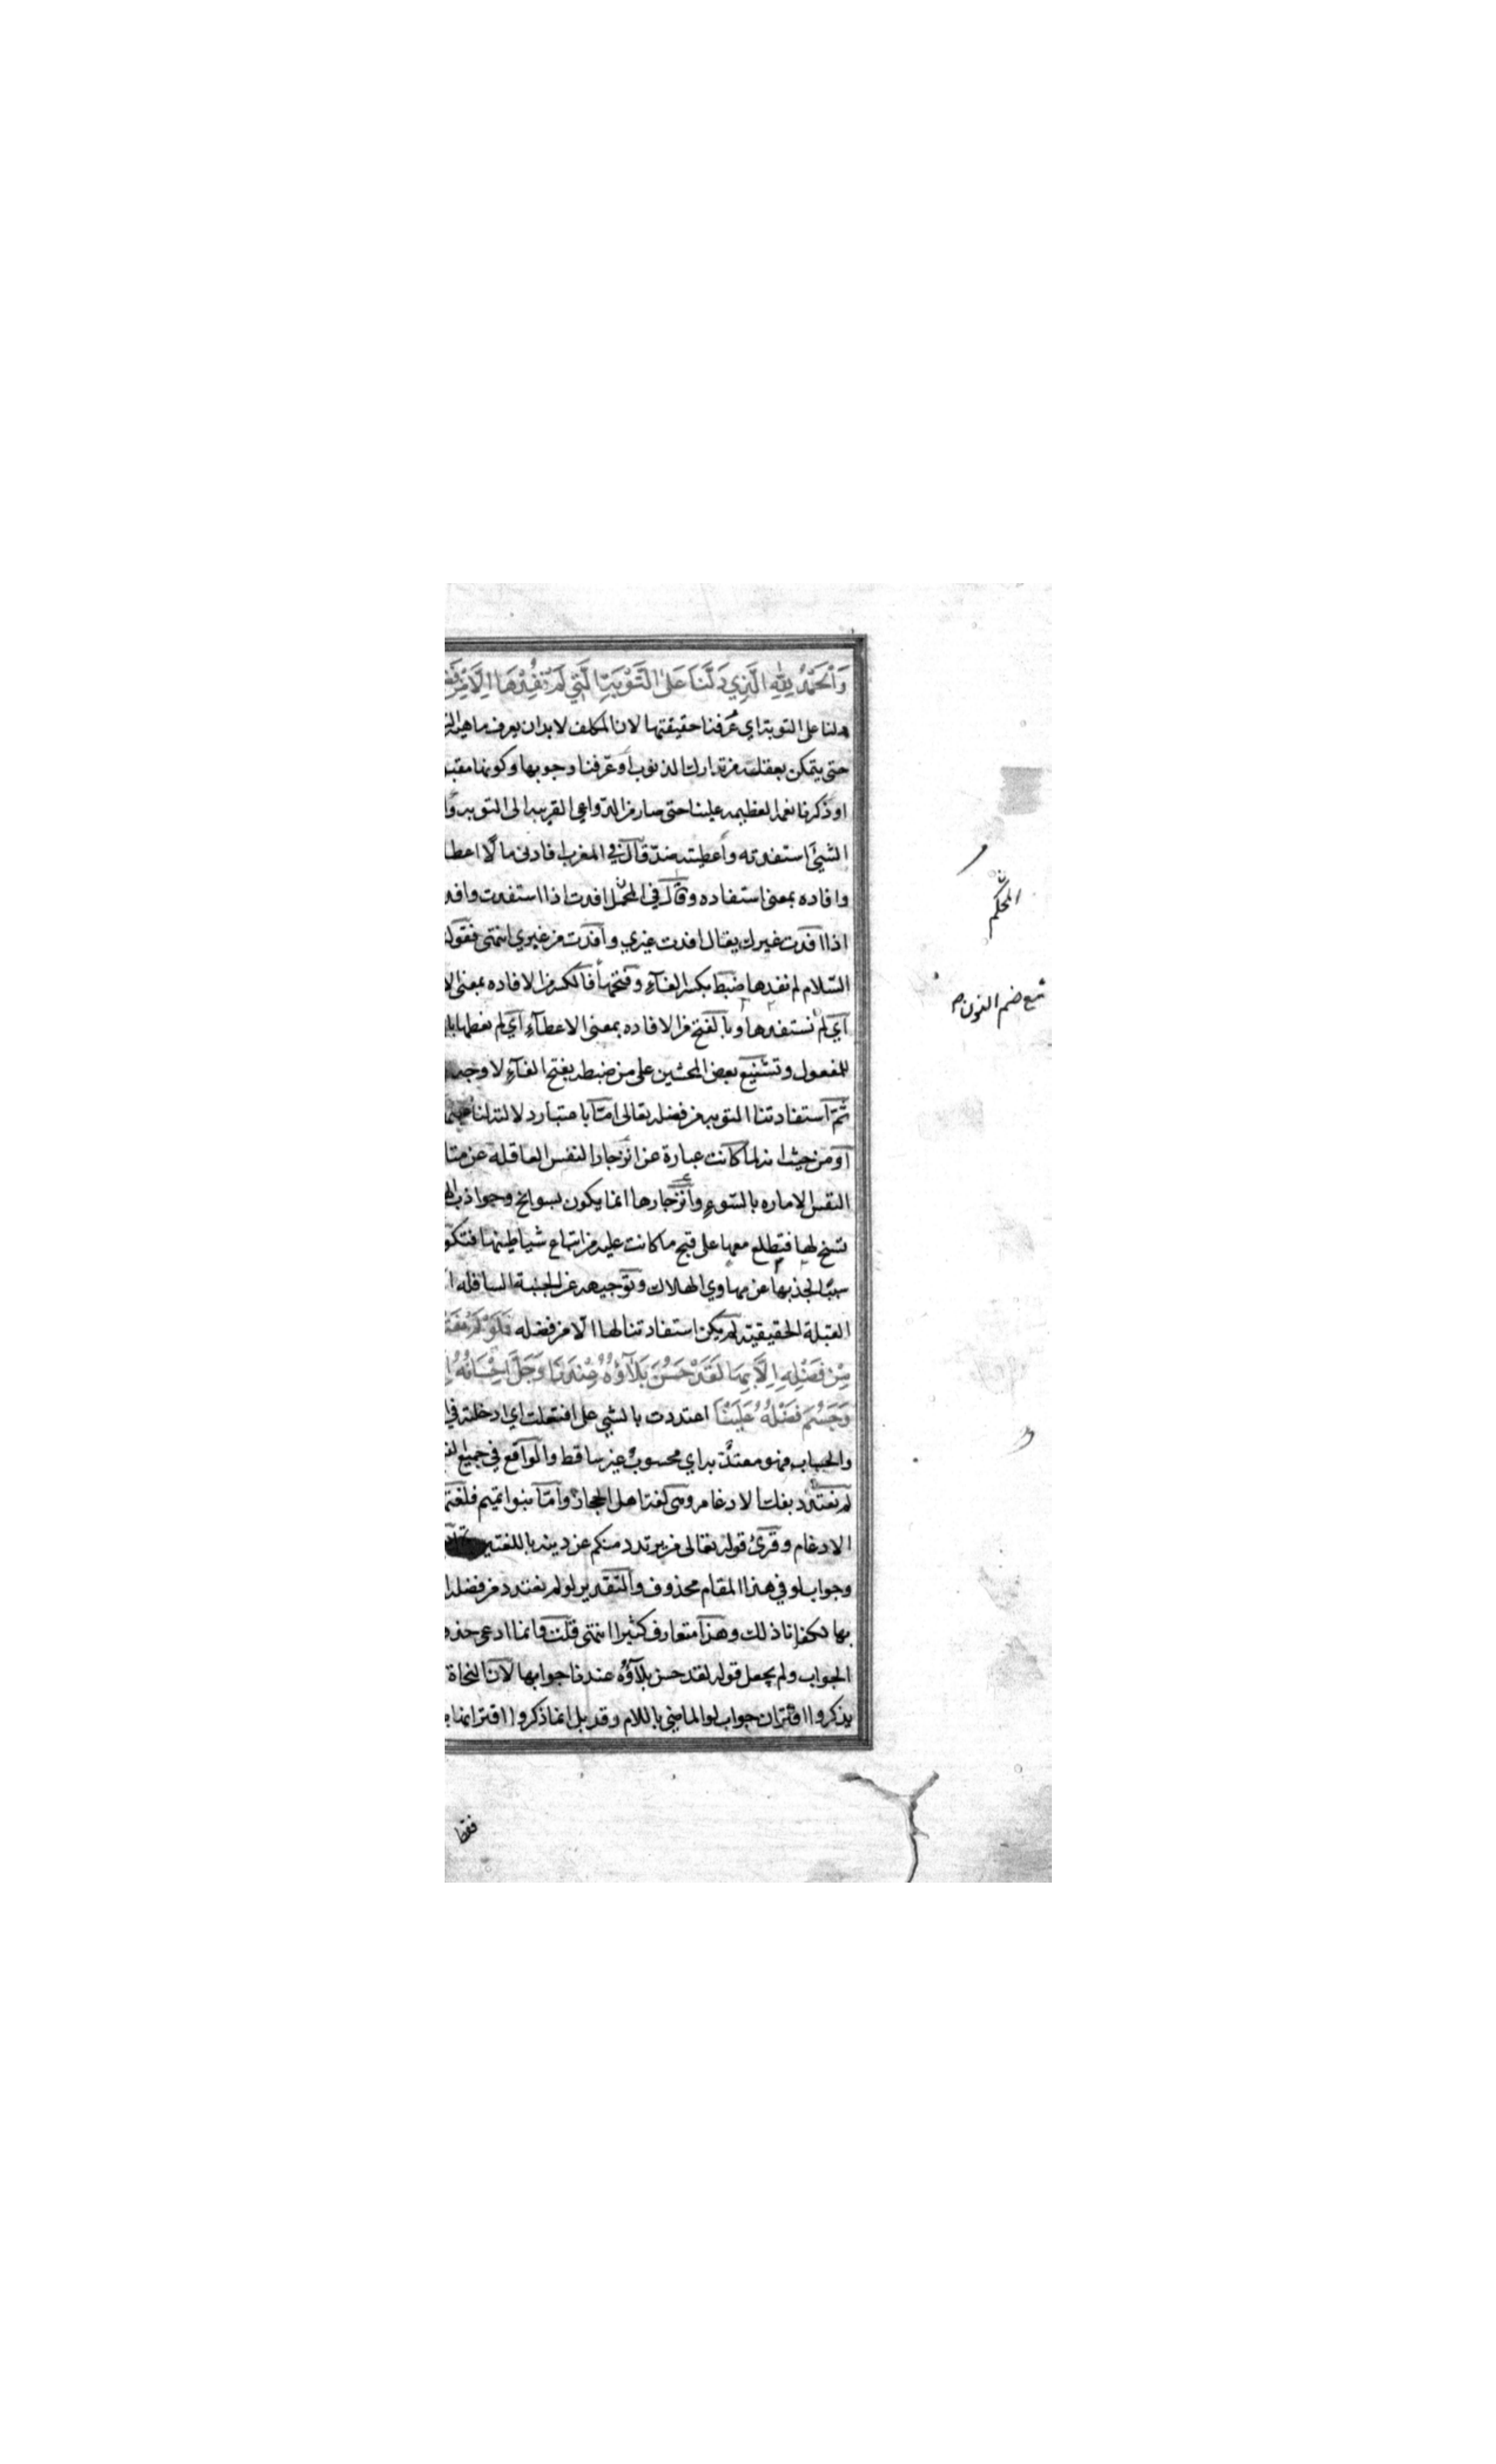 وَالْحَمْدُ لِلّٰهِ الَّذِي دَلَّنَا عَلَى التَّوْبَةِ الَّتِي لَمْ نُفِدْهَا اِلَّا مِنْ
دلنا على التوبة اي عرفنا حقيقتها لان المكلف لابد ان يعرف ماهية
حتى يتمكن بعقله من تدارك الذنوب او عرفنا وجوبها وكونها
او ذكرنا نعمه العظيمه علينا حتى صار من الدواعي القريبه الى التوبه
الشيئ استفدته واعطيته ضد قال في المغرب افادني مالا
وافاده بمعنى استفاده وقال في المجمل افدت اذا استفدت
اذا افدت غيرك يقال افدت غيري وافدت من غيري انتهى فقوله
السلام لم نفدها ضبط بكسر الفاء وفتحها فالكسر من الافاده بمعنى
اي لم نستفدها وبالفتح من الافاده بمعنى الاعطاء اي لم نعطها
للمفعول وتشنيع بعض المحشين على من ضبطه بفتح الفاء لا وجه
ثم استفادتنا التوبه من فضله تعالى اما باعتبار دلالته لنا
او من حيث انه لما كانت عبارة عن انزجار النفس العاقلة عن
النفس الاماره بالسوء وانزجارها انما يكون بسوانح وجواذب
تسنح لها فتطلع معها على قبح ما كانت عليه من اتباع شياطينها
سببا لجذبها عن مهاوي الهلاك وتوجيهه عن الجنبة السافله
القبلة الحقيقيه لم يكن استفادتنا لها الا من فضله فَلَوْ لَمْ
مِنْ فَضْلِهِ اِلَّا بِهَا لَقَدْ حَسُنَ بَلَاؤُهُ عِنْدَنَا وَجَلَّ اِحْسَانُهُ
وَجَسُمَ فَضْلُهُ عَلَيْنَا اعتددت بالشي على افتعلت اي ادخلته في
والحساب فهو معتد به اي محسوب غير ساقط والواقع في جميع
لم نعتدد بفك الادغام وهي لغة اهل الحجاز واما بنوا تميم
الادغام وقرئ قوله تعالى من يرتدد منكم عن دينه باللغتين
وجواب لو في هذا المقام محذوف والتقدير لو لم نعتدد من فضله
بها لكفانا ذلك وهذا متعارف كثيرا انتهى قلت وانما ادعى
الجواب ولم يجعل قوله لقد حسن بلاؤه عندنا جوابها لان النحاة
يذكروا اقتران جواب لو الماضي باللام وقد بل انما ذكروا اقترانها
المحكم
مع ضم النون
فقط